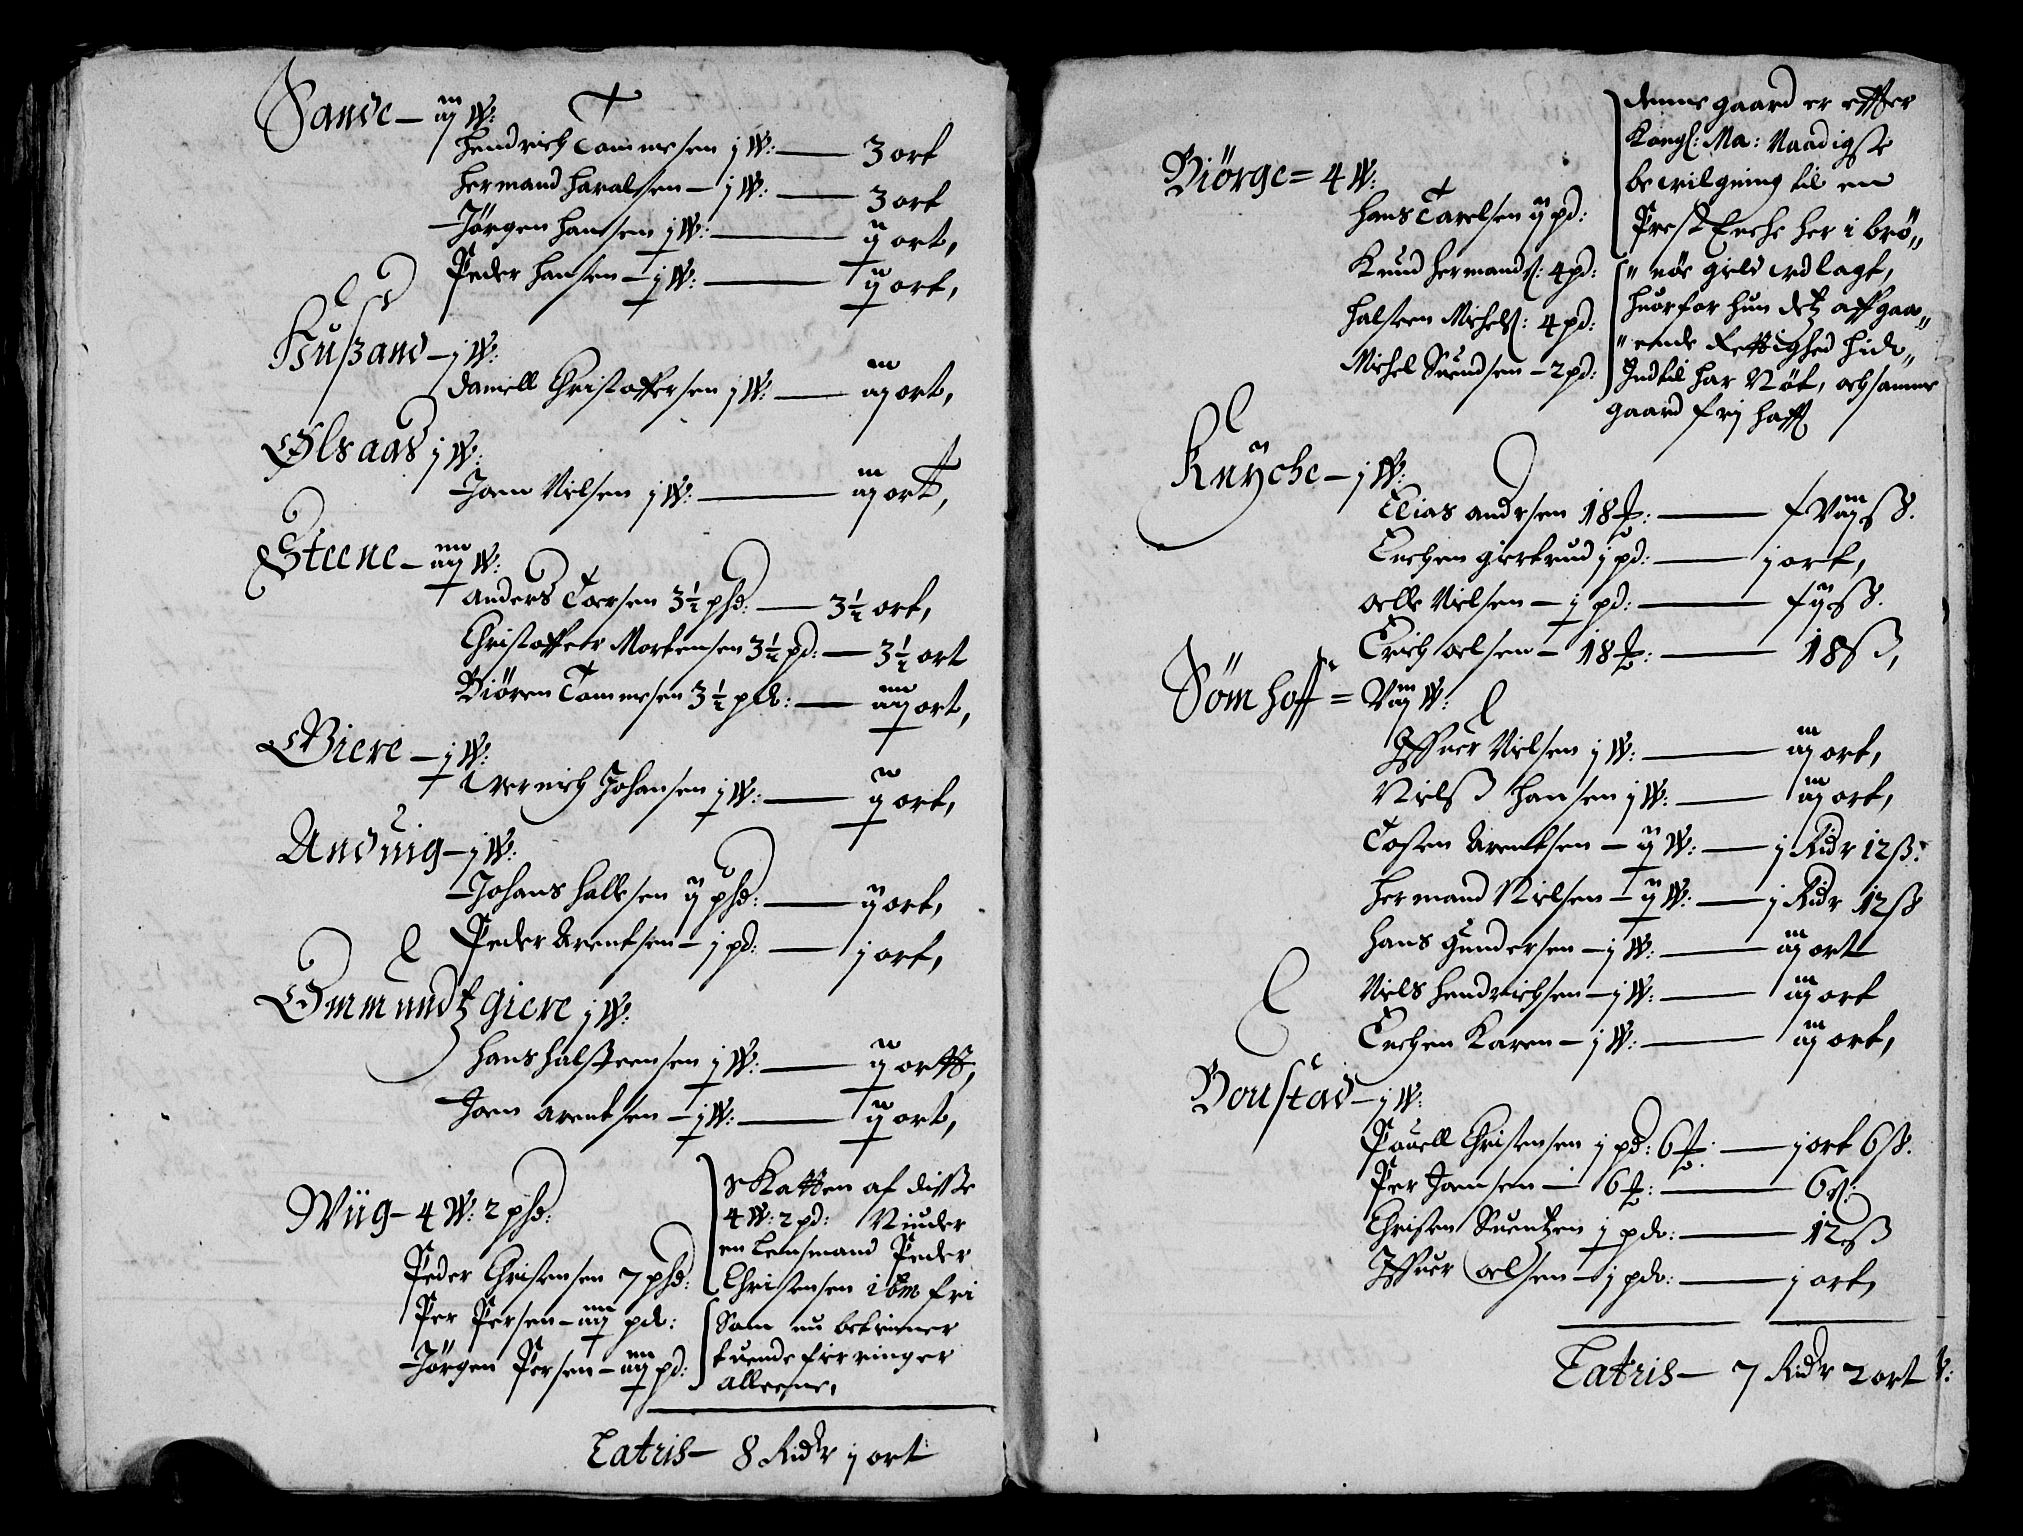 Sande – iij W:
Hendrich Tommesen j W: — 3 ort
Hermand Haralsen – j W: — 3 ort
Jörgen Hansen j W: — ij ort,
Peder Hansen – j W: — ij ort,
Hußand – j W:
Daniell Christoffersen j W: — iij ort,
Ølsaas j W:
Joen Nielsen j W: — iij ort,
Steene – iiij W:
Anders Toersen 3½ phd: — 3½ ort,
Christoffer Mortensen 3½ pd: — 3½ ort
Biören Tommesen 3½ pd: — iiij ort,
Giere – j W:
Wernich Johansen j W: — ij ort,
Anduig – j W:
Johans Hallesen ij phd: — ij ort,
Peder Arentsen – j pd: — j ort,
Ommundtz giere j W:
Hans Halsteensen j W: — ij ort,
Joen Arentsen – j W: — ij ort,
Wiig – 4 W: 2 phd:
Peder Christensen 7 phd:
Per Persen – iiij pd:
Jörgen Persen – iiij pd:
Skatten af disse
4 W: 2 pd: Niuder
en Lensmand Peder
Christensen ibm fri
Som nu betienner
tuende fierringer
alleene,
Latris – 8 Ridr j ort
Biörge = 4 W:
Hans Tarelsen ij pd:
Knud Hermands: 4 pd:
Halsteen Michels: 4 pd:
Michel Suendsen – 2 pd:
denne gaard er effter
Kongl: Ma: Naadigste
bewilgning til en
Prest Enche her i brö„
„nöe gield udlagt,
huorfor hun detz affgaa„
„ende Rettighed hid„
Indtil har Nöt, och samme
gaard frij hafft
Knyche – j W:
Elias Andrsen 18 ℔: — f Viij ß.
Enchen giertrud j pd: — j ort,
Oelle Nielsen – j pd: — f ij ß.
Erich Oelsen – 18 ℔: — 18 ß,
Sömhoff = Viij W:
Iffuer Nielsen j W: — iij ort,
Nielß Hansen j W: — iij ort,
Tosten Arentsen – ij W: — j Ridr 12 ß.
Hermand Nielsen – ij W: — j Ridr 12 ß
Hans Gundersen – j W: — iij ort
Niels Hendrichsen – j W: — iij ort
Enchen Karen – j W: — iij ort,
Boustad – j W:
Pouell Christensen j pd: 6 ℔: — j ort 6 ß.
Per Joensen – 6 ℔: — 6 ß.
Christen Suentzen j pd: — 12 ß
Iffuer Oelsen – j pd: — j ort,
Latris – 7 Ridr 2 ort